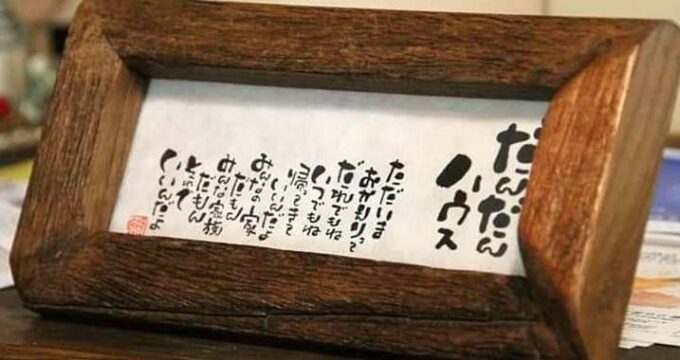 だんだん
ハウス
ただいま
おかえりって
だれでもね
いつでもね
帰ってきて
いいんだよ
みんなの家
だもん
みんな家族
だもん
とれて
いいんだよ